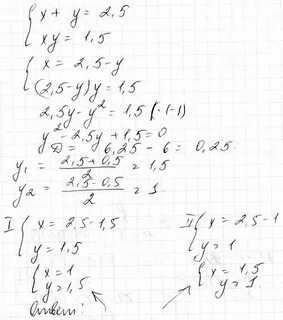 { x + y = 2,5
{ xy = 1,5
{ x = 2,5 - y
(2,5 - y)y = 1,5
2,5y - y² = 1,5 |·(-1)
y² - 2,5y + 1,5 = 0
D = 6,25 - 6 = 0,25
y₁ = (2,5 + 0,5)/2 = 1,5
y₂ = (2,5 - 0,5)/2 = 1
I { x = 2,5 - 1,5
{ y = 1,5
{ x = 1
{ y = 1,5
II { x = 2,5 - 1
{ y = 1
{ x = 1,5
{ y = 1
Ответ: